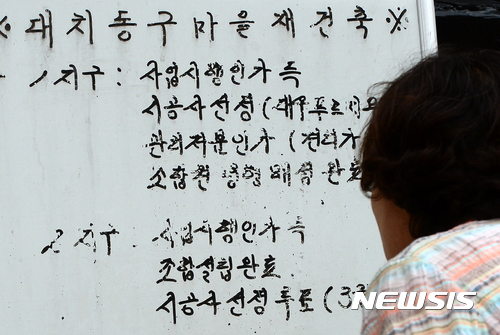 ※대치동구마을재건축※
1지구: 사업시행인가 득
시공사선정(대우푸르지오
관리처분인가 (
조합원 동형 배정 완료
2지구: 사업시행인가득
조합설립완료
시공사선정 후보 (3
NEWSIS